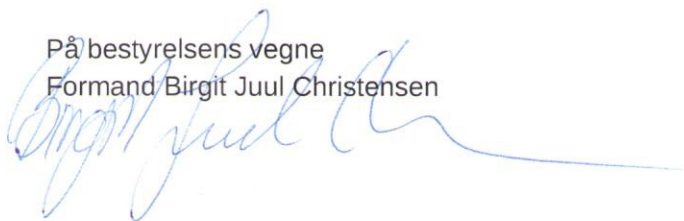 På bestyrelsens vegne
Formand Birgit Juul Christensen
Birgit Juul Ch